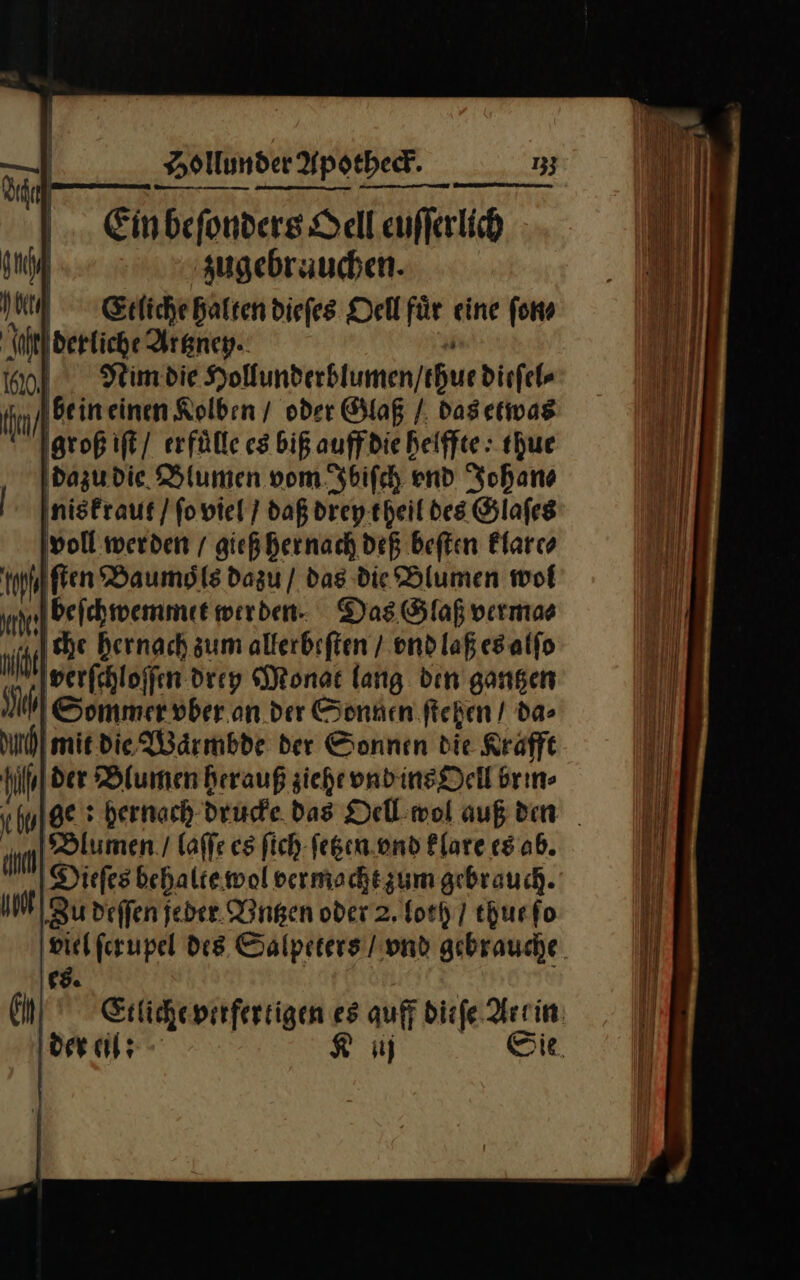 Hollunder Apotheck. 133
Ein beſonders Oell euſſerlich
zugebrauchen.
Etliche halten dieſes Oell fuͤr eine ſon⸗
derliche Artzney.
Nim die Hollunderblumen/thue dieſel⸗
be in einen Kolben / oder Glaß / das etwas
groß iſt / erfuͤlle es biß auff die helffte: thue
dazu die Blumen vom Ibiſch vnd Johan⸗
niskraut / ſo viel / daß drey theil des Glaſes
voll werden / gieß hernach deß beſten klare⸗
ſten Baumoͤls dazu / das die Blumen wol
beſchwemmet werden. Das Glaß verma⸗
che hernach zum allerbeſten / vnd laß es alſo
verſchloſſen drey Monat lang den gantzen
Sommer vber an der Sonnen ſtehen / da⸗
mit die Waͤrmbde der Sonnen die Kraͤfft
der Blumen herauß ziehe vnd ins Oell brin⸗
ge : hernach drucke das Oell wol auß den
Blumen / laſſe es ſich ſetzen vnd klare es ab.
Dieſes behalte wol vermacht zum gebrauch.
Zu deſſen jeder Vntzen oder 2. loth / thue ſo
viel ſcrupel des Salpeters / vnd gebrauche
es.
Etliche verfertigen es auff dieſe Art in
der eil: K iij Sie